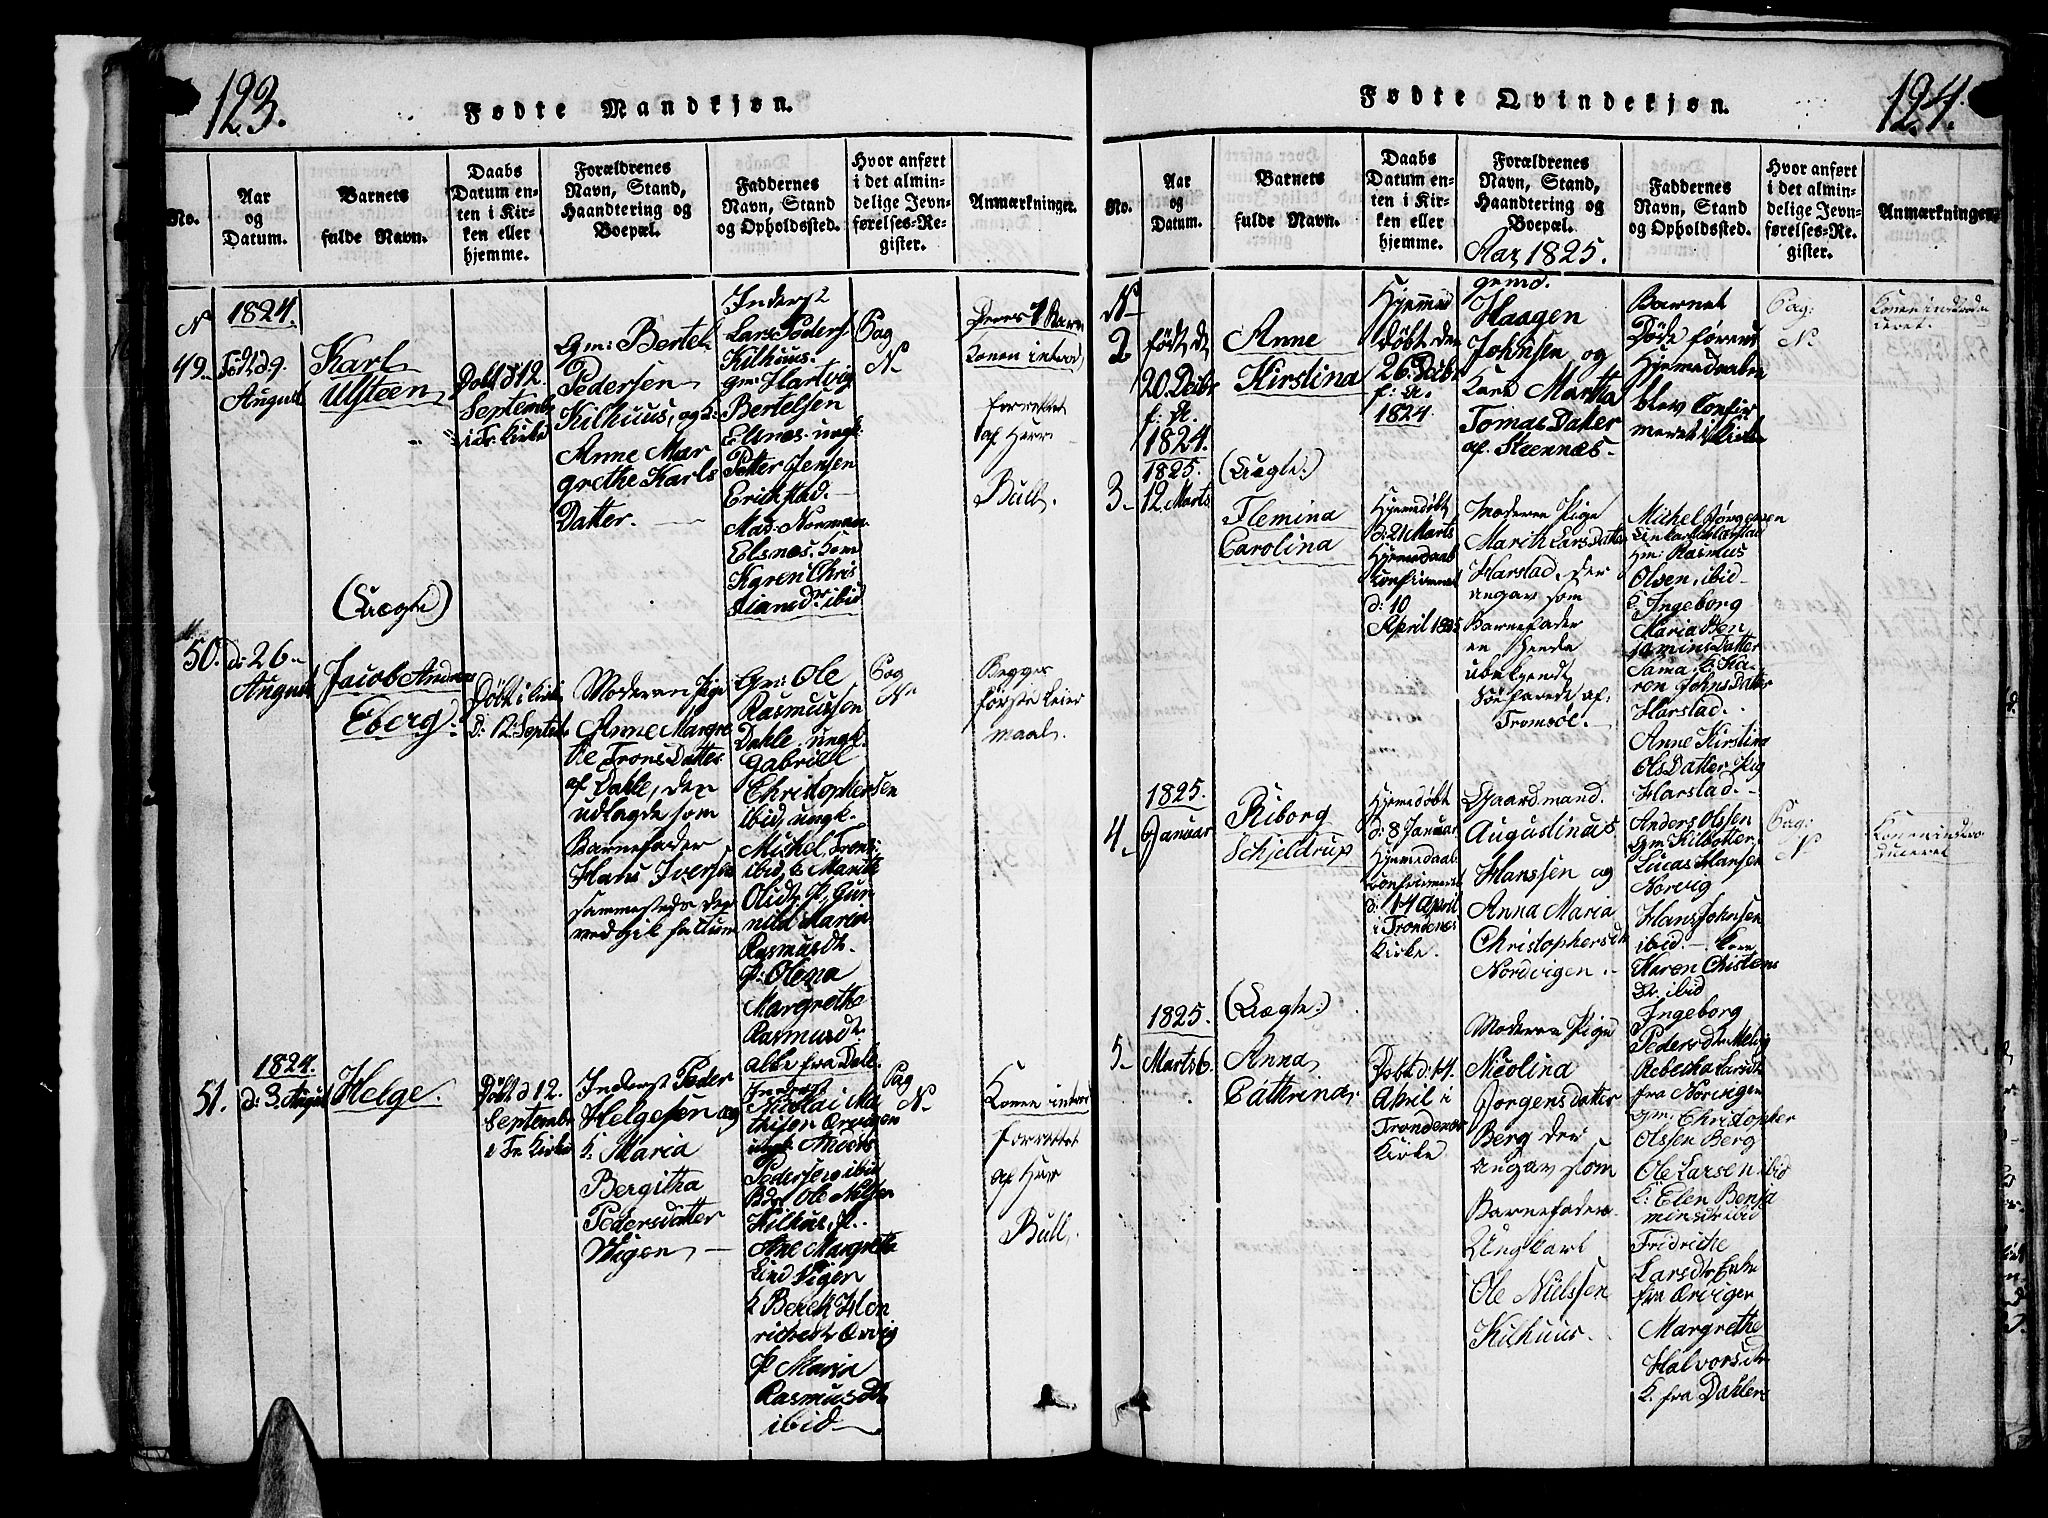 123.
Fødte Mandkjøn.
No.
Aar
og
Datum.
Barnets
fulde Navn.
Daabs
Datum en-
ten i Kir-
ken eller
hjemme.
Forældrenes
Navn, Stand,
Haandtering og
Boepæl.
Faddernes
Navn, Stand
og Opholdssted.
Hvor anført
i det almin-
delige Jevn-
førelses-Re-
gister.
Anmærkninger.
N
49.
1824.
Født d 9.
August
Karl
Ulsteen
Døbt d 12
Septembr
i Tr. Kirke
Gm: Bertel
Pedersen
Kilhuus, og K:
Anne Mar
grethe Karls
Datter.
Inderst
Lars Peders
Kilhuus.
gm: Hartvig
Bertelsen
Elsnæs. ungk.
Petter Jensen
Erichstad.
Mad: Norman
Elsnæs. Kom
Karen Chris
tiansdr ibid
Pag
N
Deres 1 Barn
Konen introd
forrettet
af Herr
Bull.
(Uægte)
50.
d: 26
August
Jacob Andreas
Eberg.
Døbt i Kirke
D: 12 Septbr
Moderen Pige
Anne Margre
the Trons Datter
af Dahle, der
udlagde som
Barnefader
Hans Iversen
sammesteds der
vedgik factum
Gm: Ole
Rasmussen
Dahle, ungk.
Gabriel
Christophersen
ibid, ungk.
Michel Trons:
ibid, K Marith
Olsdr, P. Gun
nild Maria
Rasmusdr.
P: Olena
Margrethe
Rasmusdr.
alle fra Dale.
Pag
N
Begges
første Leier
maal.
51.
1824.
d: 3. August
Helge.
Døbt d 12.
September
i Tr. Kirke
Inderst Peder
Helgesen og
K. Maria
Bergitha
Pedersdatter
Wigen
Inderst
Nicolai Ma
thison Ærvigen
ungk. Anders
Pedersen ibid
Ole Nilsen
Kilhus, P.
Ane Margretha
Lind Vigen
K Berett Hen
richsdr Ærvig
P Maria
Rasmusdr
ibid
Pag
N
Konen introd
forrettet
af Herr
Bull.
124.
Fødte Qvindekjøn.
No.
Aar
og
Datum.
Barnets
fulde Navn.
Daabs
Datum en-
ten i Kir-
ken eller
hjemme.
Forældrenes
Navn, Stand,
Haandtering og
Boepæl.
Aar 1825.
Faddernes
Navn, Stand
og Opholdssted.
Hvor anført
i det almin-
delige Jevn-
førelses-Re-
gister.
Anmærkninger.
N
2
født d
20 Decbr
f: A.
1824.
Anne
Kirstina
Hjemme
døbt den
26 Decbr
f: A.
1824
gmd.
Haagen
Johnsen, og
Kone Martha
Tomas Datter
af Steennæs.
Barnet
Døde førend
Hjemedaaben
blev Confir
meret i Kirken
Pag:
N
Konen introdu
ceret.
3
1825.
12 Marts
(Uægte:)
Flemina
Carolina
Hjemedøbt
d: 21 Marts
Hjemedaab
Confirmeret
d: 10
April 1825
Moderen Pige
Marith Lars Datter
Harstad, der
angav som
Barnefader
en heende
ubekjendt
Søefarende af
Tromsöe.
Michel Jørgensen
Harstad
gm: Rasmus
Olsen, ibid
K: Ingeborg
Maria Ben
jamins Datter
Sama, K: Ka
ren Johns Datter
Harstad.
Anne Kirstina
Ols Datter Pig
Harstad.
4
1825.
Januar
Riborg
Schjeldrup
Hjemedøbt
d: 8 Januar
Hjemedaab
Confirmeret
d: 14 April
i Trondenes
Kirke.
Gaardmand.
Augustinus
Hanssen og
Anna Maria
Christophersdr
Nordvigen.
Anders Olssen
gm Kilbotter
Lucas Hansen
Norvig
Hans Johnsen
ibid. Kone
Karen Christens
Dr. ibid
Pag:
N
Konen intro
duceret
5
1825.
Marts 6.
(Uægte:)
Anna
Cathrina
Døbt d: 14.
April i
Trondenæs
Kirke
Moderen Pige
Nicolina
Jørgens datter
Berg der
angav som
Barnefader
Ungkarl
Ole Nielssen
Kilhuus.
Ingeborg
Pedersdr Melvig
Rebecka Larsdr
fra Norvigen
gm: Christopher
Olssen Berg
Ole Larsen ibid
K: Elen Benja
minsdr ibid
Fridriche
Larsdr Enke
fra Ærvigen
Margrethe
Halvorsdr
K. fra Dahlen